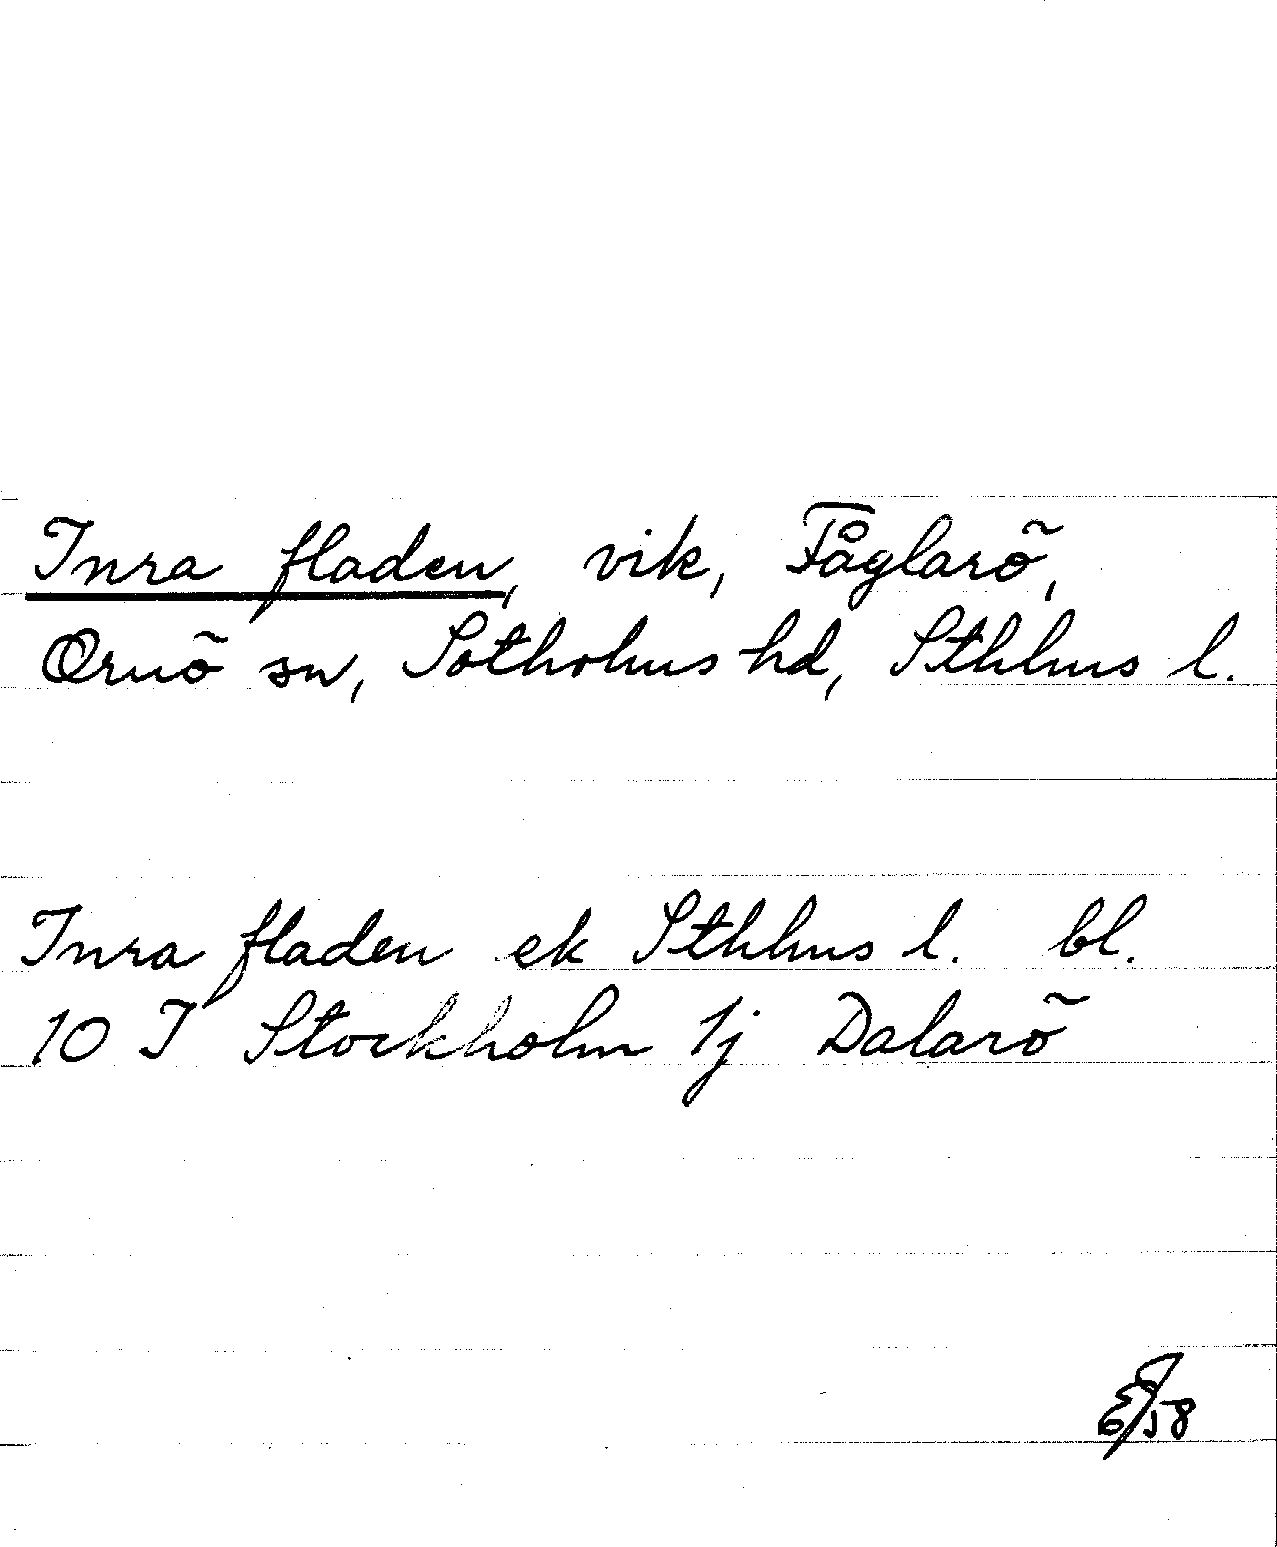 Inra fladen, vik, Fåglarö,
Ornö sn, Sotholms hd, Sthlms l.
Inra fladen ek Sthlms l. bl.
10 I Stockholm 1j Dalarö
58